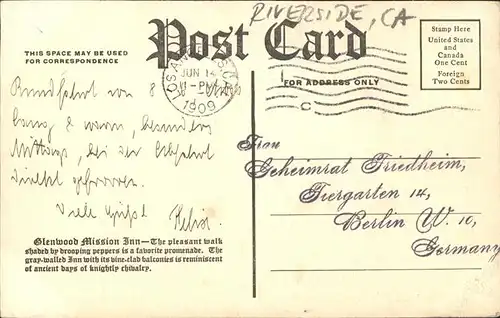 RIVERSIDE, CA
Post Card
THIS SPACE MAY BE USED
FOR CORRESPONDENCE
FOR ADDRESS ONLY
Stamp Here
United States
and
Canada
One Cent
Foreign
Two Cents
JUN 14
1909
Rundfahrt von 8
lang, & warm, besonders
Mittags, bei der Abfahrt
direkt gefroren.
Viele Grüße!
Frau
Geheimrat Friedheim,
Tiergarten 14,
Berlin W. 10,
Germany
Glenwood Mission Inn—The pleasant walk
shaded by drooping peppers is a favorite promenade. The
gray-walled Inn with its vine-clad balconies is reminiscent
of ancient days of knightly chivalry.